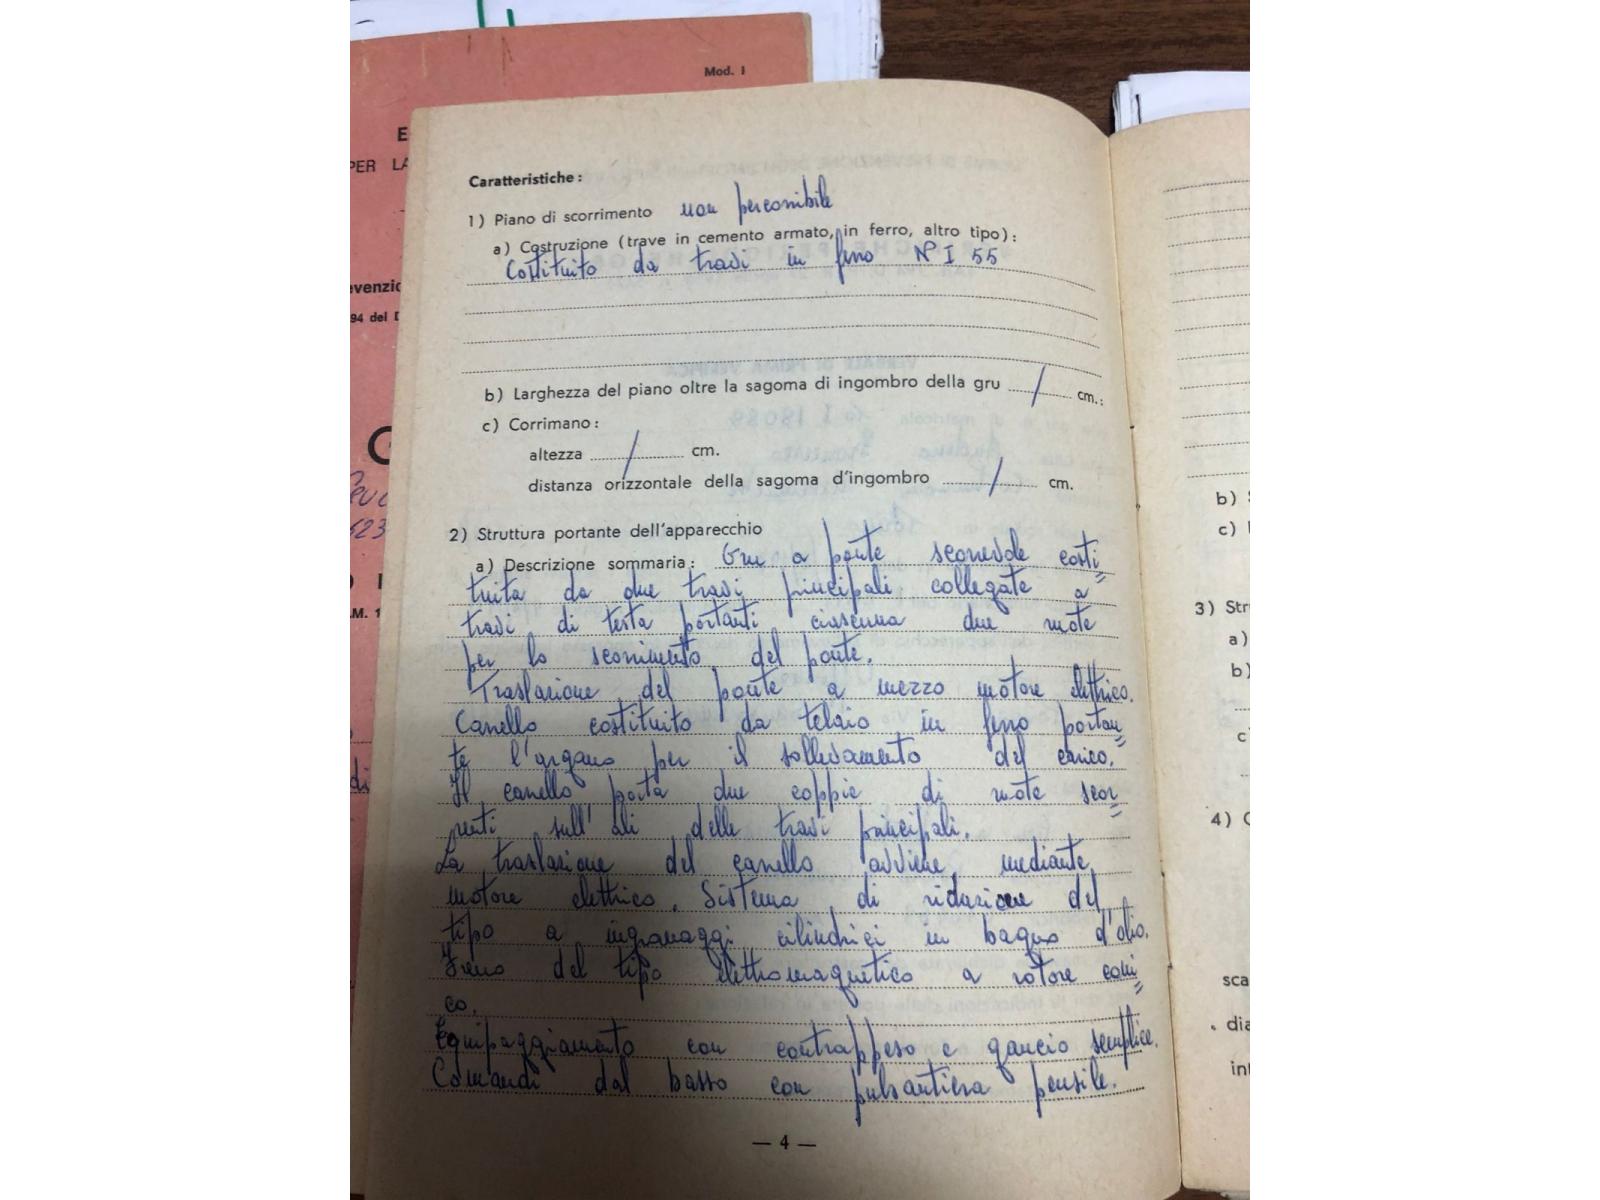 Mod. I
E
PER LA
evenzio
94 del D
G
523
M. 1
di
Caratteristiche :
1) Piano di scorrimento non percorribile
a) Costruzione (trave in cemento armato, in ferro, altro tipo) :
Costituito da travi in ferro N° I 55
b) Larghezza del piano oltre la sagoma di ingombro della gru / cm. :
c) Corrimano :
altezza / cm.
distanza orizzontale della sagoma d'ingombro / cm.
2) Struttura portante dell'apparecchio
a) Descrizione sommaria : Gru a ponte scorrevole costi=
tuita da due travi principali collegate a
travi di testa portanti ciascuna due ruote
per lo scorrimento del ponte.
Traslazione del ponte a mezzo motore elettrico.
Carrello costituito da telaio in ferro portan=
te l'argano per il sollevamento del carico.
Il carrello porta due coppie di ruote scor=
renti sull'ali delle travi principali.
La traslazione del carrello avviene mediante
motore elettrico. Sistema di riduzione del
tipo a ingranaggi cilindrici in bagno d'olio.
Freno del tipo elettromagnetico a rotore coni=
co.
Equipaggiamento con contrappeso e gancio semplice.
Comandi dal basso con pulsantiera pensile.
— 4 —
b)
c)
3) Str
a)
b)
c
4)
sca
dia
int